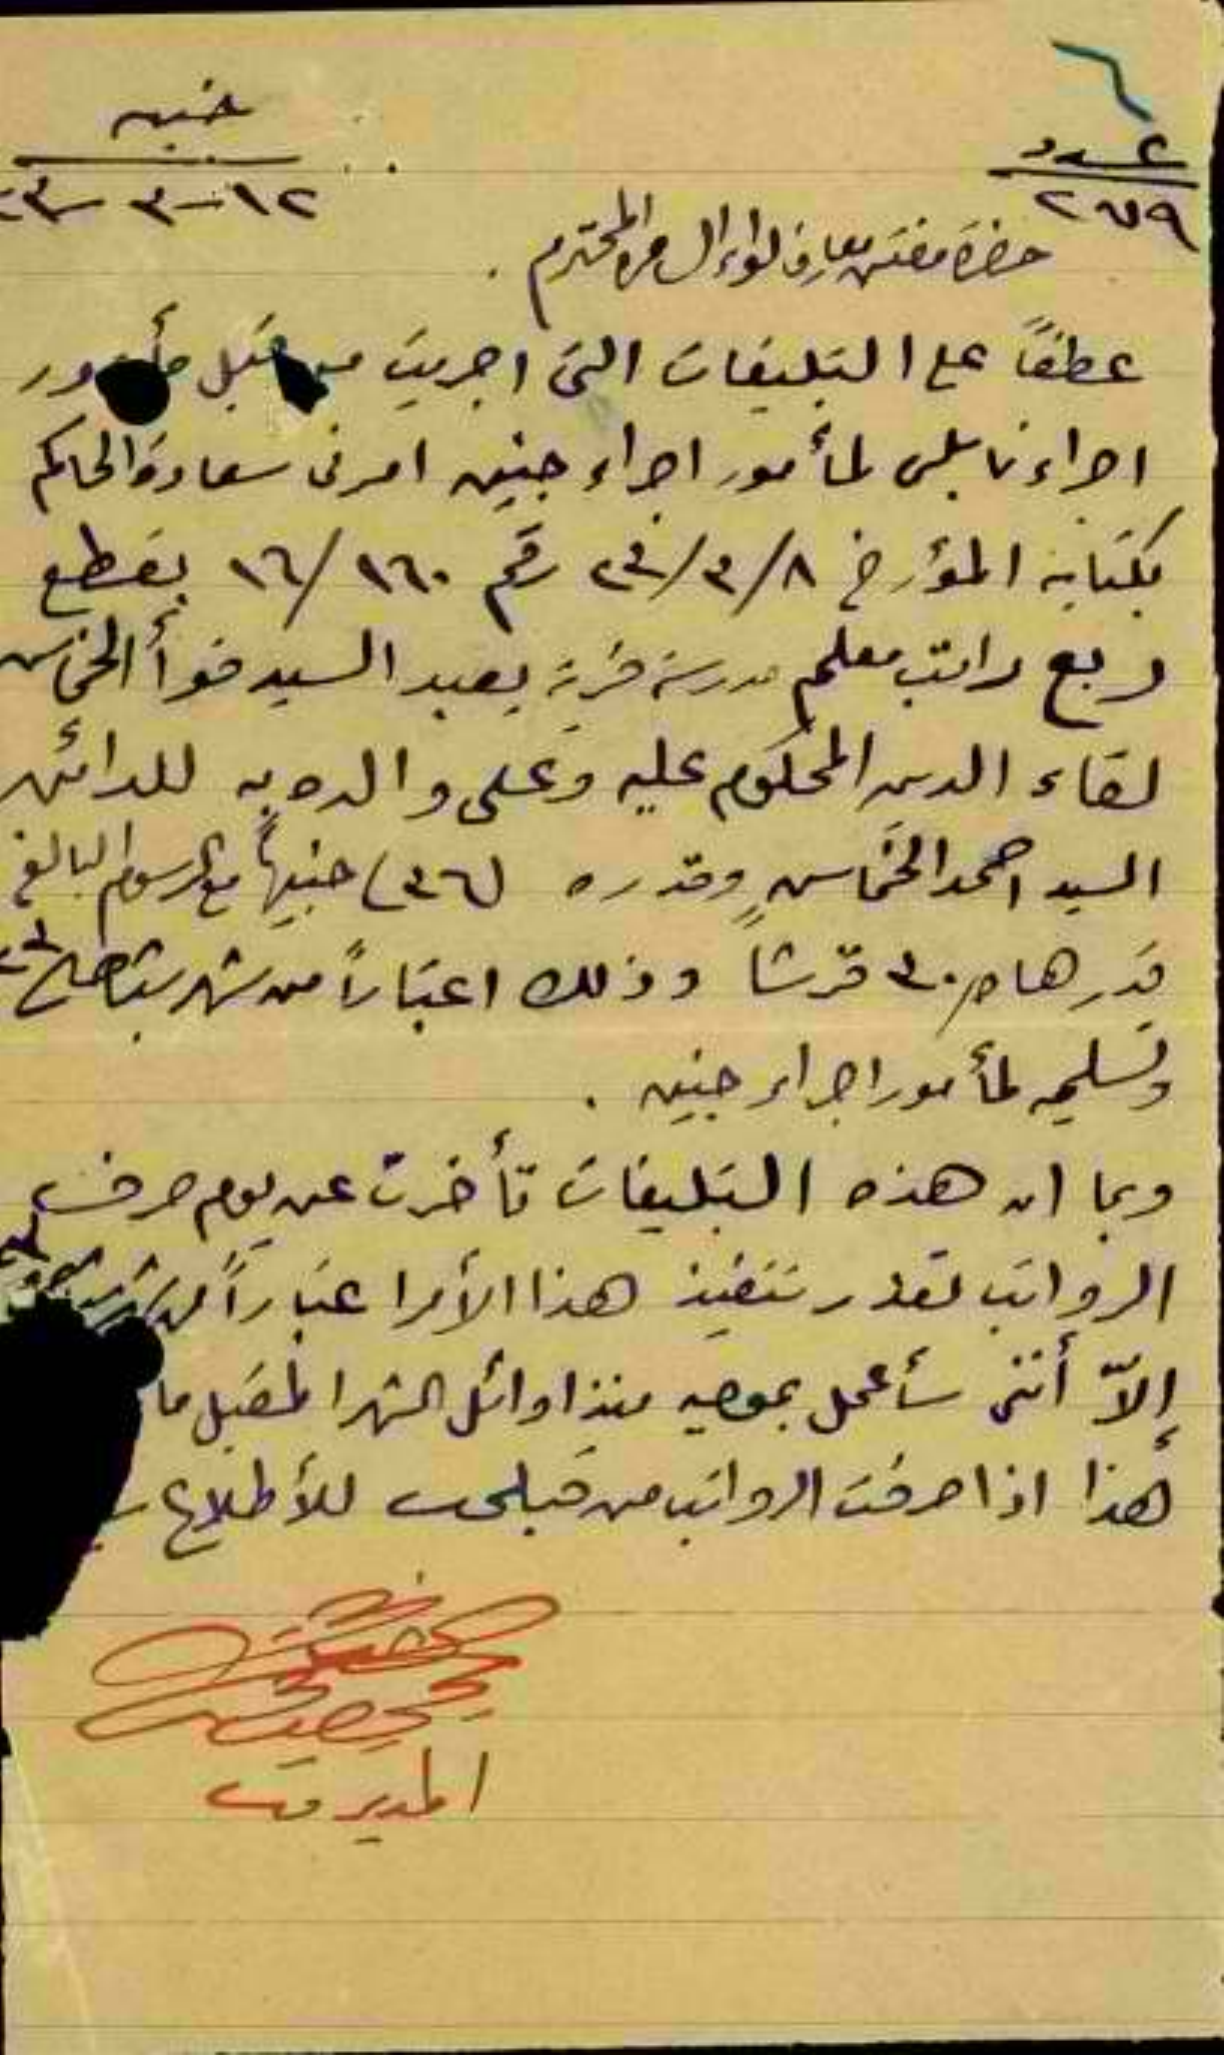 ٦
جنين
عدد
١٢-٣-٢٣
٢٧٩
حضرة مفتش معارف لواء السامرة المحترم .
عطفاً على التبليغات التي اجريت من قبل مأمور
اجراء نابلس لمأمور اجراء جنين امرني سعادة الحاكم
بكتابه المؤرخ ٨/٣/٢٣ رقم ١٦٠/١٦ بقطع
ربع راتب معلم مدرسة قرية يعبد السيد فؤاد الخماش
لقاء الدين المحكوم عليه وعلى والده به للدائن
السيد احمد الخماش وقدره (٣٦) جنيهاً مع الرسوم البالغ
قدرها ٣٠ قرشاً وذلك اعتباراً من شهر شباط ٢٣
وتسليمه لمأمور اجراء جنين .
وبما ان هذه التبليغات تأخرت عن يوم صرف
الرواتب تعذر تنفيذ هذا الأمر اعتباراً من شهر
إلاّ أنني سأعمل بموجبه منذ اوائل الشهر المقبل
هذا اذا صرفت الرواتب من قبلي للأطلاع
المدير